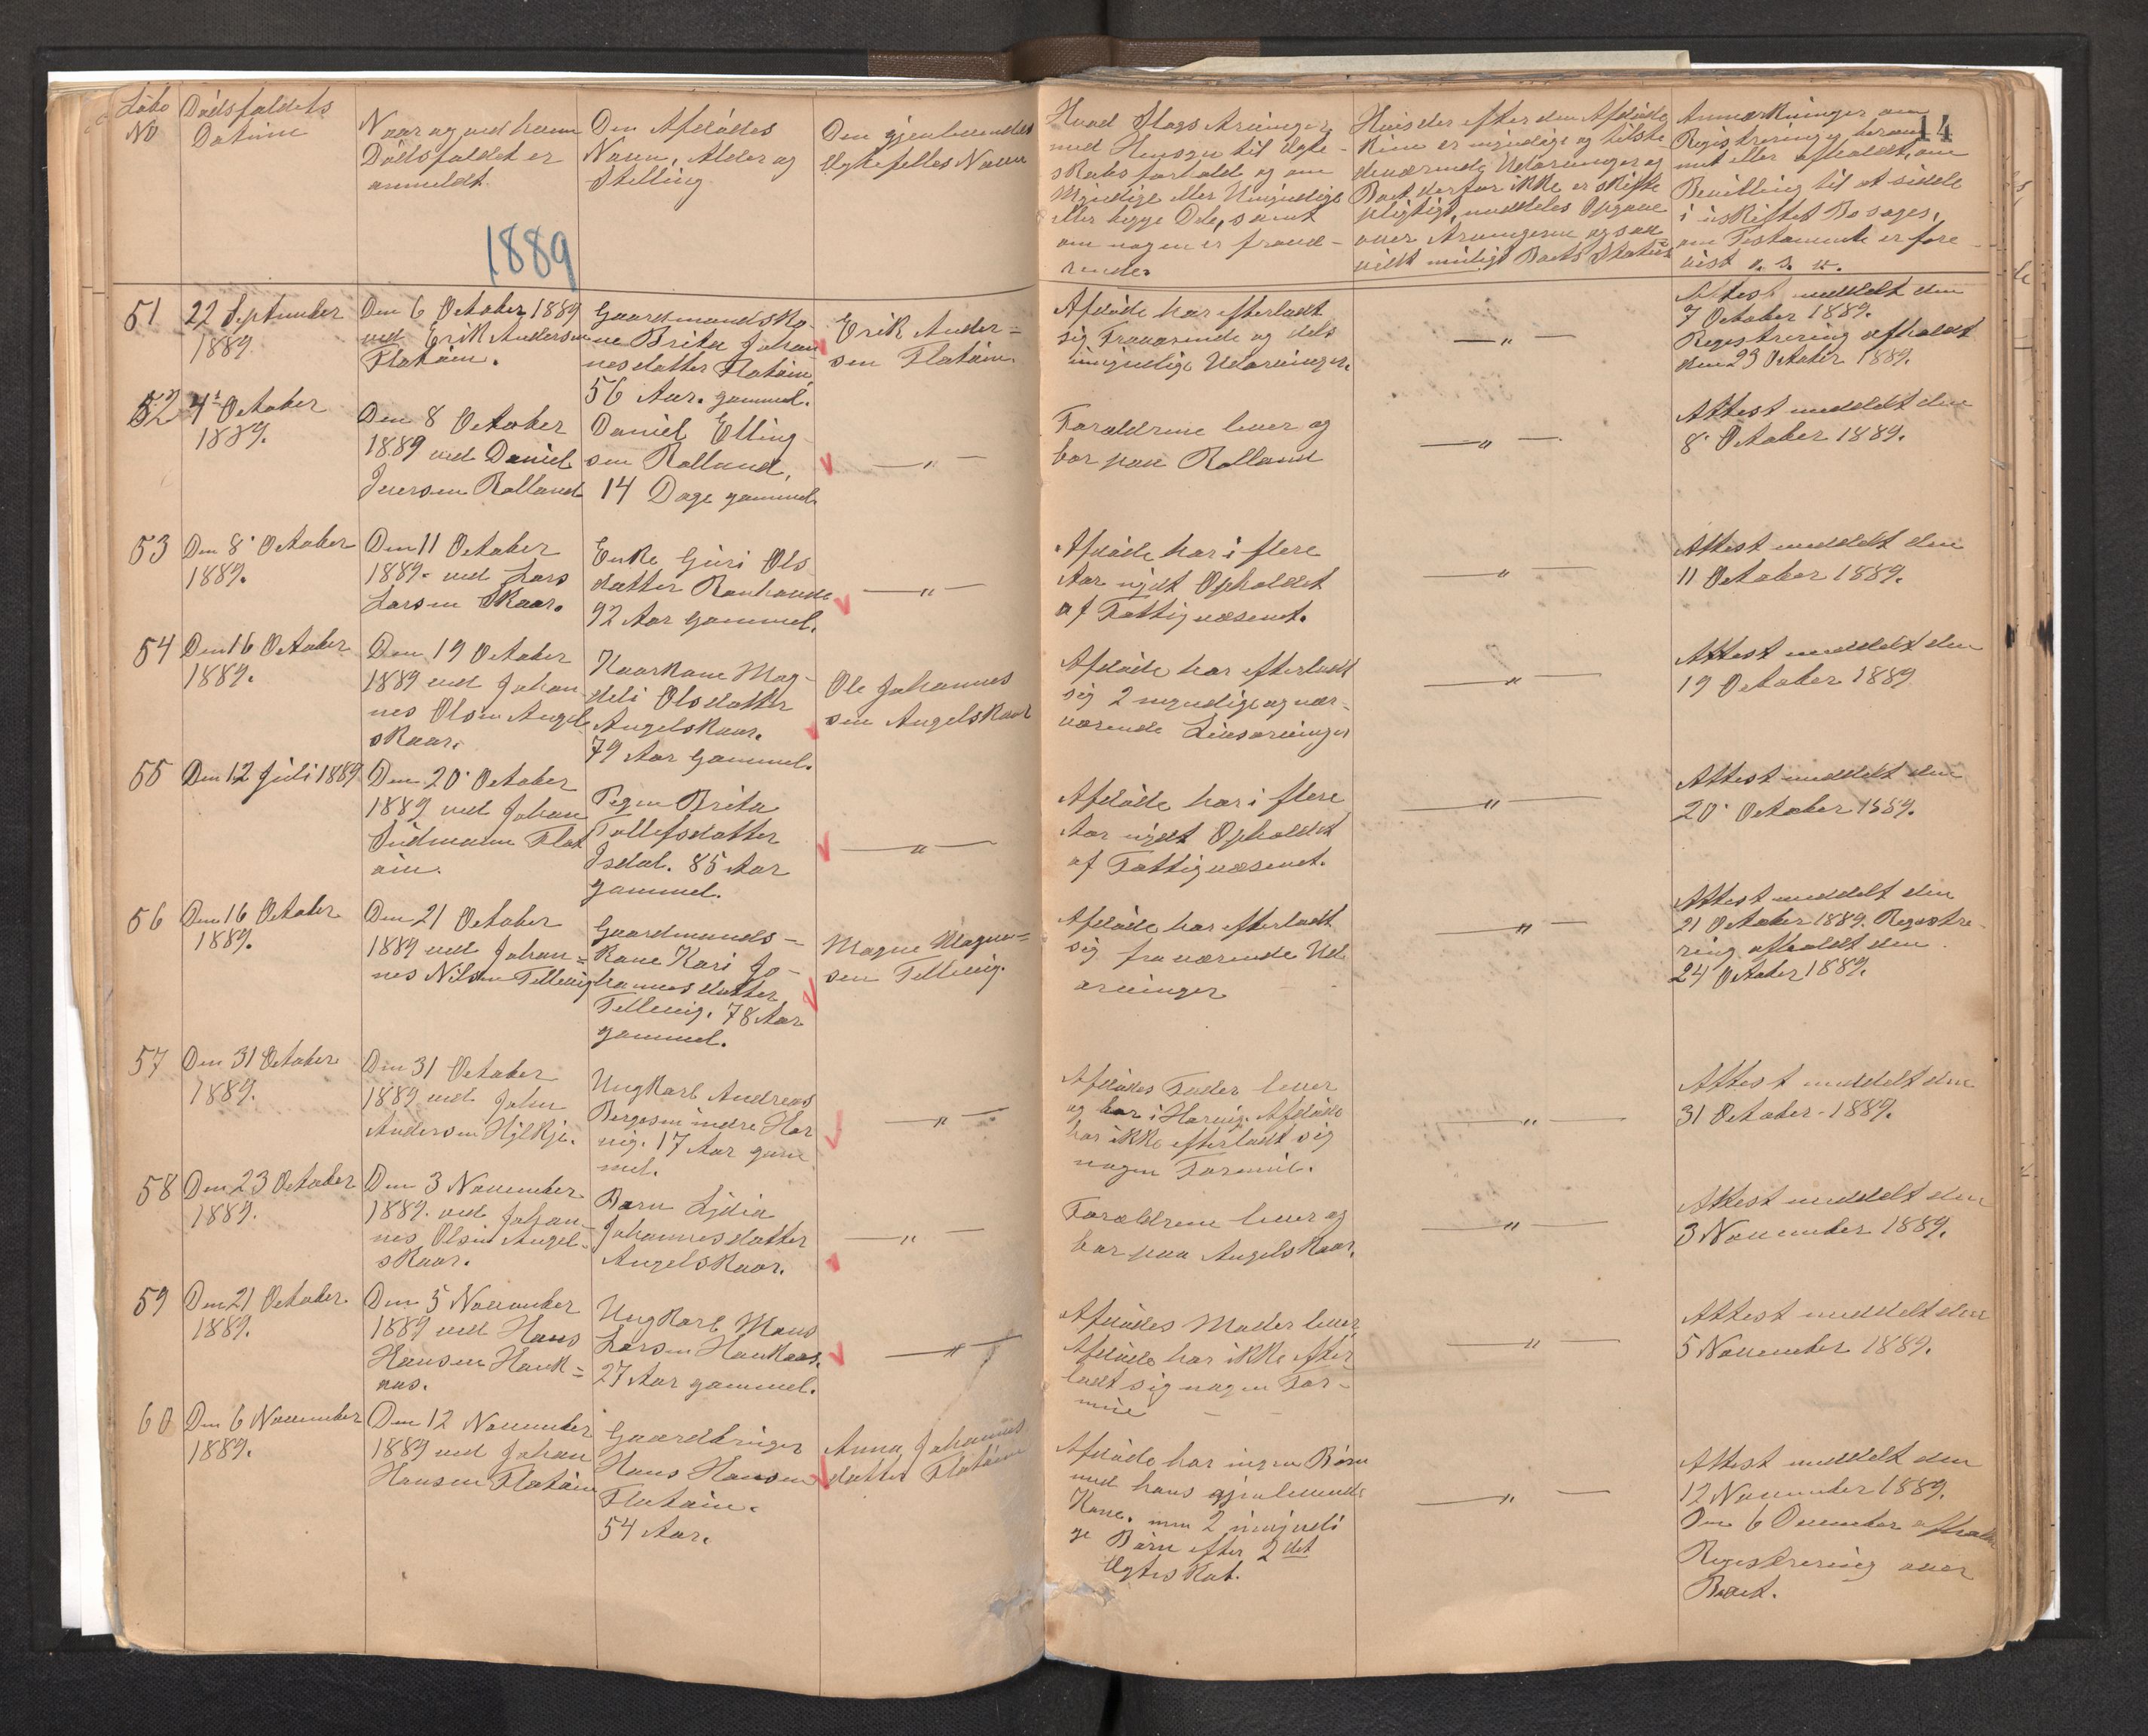 Løbe
No
Dødsfaldets
Datum
Naar og ved hvem
Dødsfaldet er
anmeldt.
Den Afdødes
Navn, Alder og
Stilling
Den gjenlevendes
Ægtefælles Navn
Hvad Slags Arvinger
med Hensyn til Ægte-
skabsforhold og om
Myndige eller Umyndige
eller begge Dele, samt
om nogen er fravæ-
rende.
Hvis der efter den Afdøde
kun er myndige og tilste-
deværende Udarvinger og
Boet derfor ikke er skifte
pligtigt, meddeles Opgave
over Arvingerne og saa
vidt muligt Boets Status
Anmærkninger om
Registrering er beram
met eller afholdt, om
Bevilling til at sidde
i uskiftet Bo søges,
om Testamente er fore
vist o. s. v.
14
1889
51
22 September
1889
Den 6 October 1889
ved Erik Andersen
Flatøen.
Gaardmandsko-
ne Brita Johan
nesdatter Flatøen,
56 Aar. gammel.
Erik Ander=
sen Flatøen.
Afdøde har efterladt
sig Fraværende og dels
umyndige Udarvinger.
— " —
Attest meddelt den
7 October 1889.
Registrering afholdt
den 23 October 1889.
52
4 October
1889.
Den 8 October
1889 ved Daniel
Iversen Rolland
Daniel Elling
sen Rolland,
14 Dage gammel
— " —
Forældrene lever og
bor paa Rolland
— " —
Attest meddelt den
8 October 1889.
53
Den 8 October
1889.
Den 11 October
1889. ved Lars
Larsen Skaar.
Enke Guri Ols
datter Ronhovde
92 Aar gammel.
— " —
Afdøde har i flere
Aar nydt Opholdet
af Fattigvæsenet.
— " —
Attest meddelt den
11 October 1889.
54
Den 16 October
1889.
Den 19 October
1889 ved Johan
nes Olsen Angel
skaar.
Kaarkone Mag-
deli Olsdatter
Angelskaar.
79 Aar gammel.
Ole Johannes
sen Angelskaar
Afdøde har efterladt
sig 2 myndige og nær-
værende Livsarvinger
— " —
Attest meddelt den
19 October 1889
55
Den 12 Juli 1889
Den 20 October
1889 ved Johan
Flat
øen.
Pigen Brita
Tollefsdatter
Isdal. 85 Aar
gammel.
— " —
Afdøde har i flere
Aar nydt Opholdet
af Fattigvæsenet.
— " —
Attest meddelt den
20 October 1889.
56
Den 16 October
1889.
Den 21 October
1889 ved Johan=
nes Nilsen Tellevig
Gaardmands-
kone Kari Jo-
hannesdatter
Tellevig. 78 Aar
gammel.
Magne Magne=
sen Tellevig.
Afdøde har efterladt
sig fraværende Ud
arvinger
— " —
Attest meddelt den
21 October 1889. Registre
ring afholdt den
24 October 1889.
57
Den 31 October
1889.
Den 31 October
1889 ved John
Andersen Hylkje.
Ungkarl Andreas
Bergesen indre Hor
vig. 17 Aar gam
mel.
— " —
Afdødes Fader lever
og bor i Horvig. Afdøde
har ikke efterladt sig
nogen Formue.
— " —
Attest meddelt den
31 October - 1889.
58
Den 23 October
1889.
Den 3 November
1889. ved Johan-
nes Olsen Angel-
skaar.
Barn Lydia
Johannesdatter
Angelskaar.
— " —
Forældrene lever og
bor paa Angelskaar.
— " —
Attest meddelt den
3 November 1889.
59
Den 21 October
1889.
Den 5 November
1889 ved Hans
Hansen Hauk=
aas.
Ungkarl Mons
Larsen Haukaas.
27 Aar gammel.
— " —
Afdødes Moder lever
Afdøde har ikke efter
ladt sig nogen For-
mue
— " —
Attest meddelt den
5 November 1889.
60
Den 6 November
1889.
Den 12 November
1889 ved Johan
Hansen Flatøen
Gaardbruger
Hans Hansen
Flatøen.
54 Aar.
Anna Johannes
datter Flatøen
Afdøde har ingen Børn
med hans gjenlevende
Kone. men 2 umyndi
ge Børn efter 2det
Ægteskab.
— " —
Attest meddelt den
12 November 1889.
Den 6 December afholdt
Registrering over
Boet.